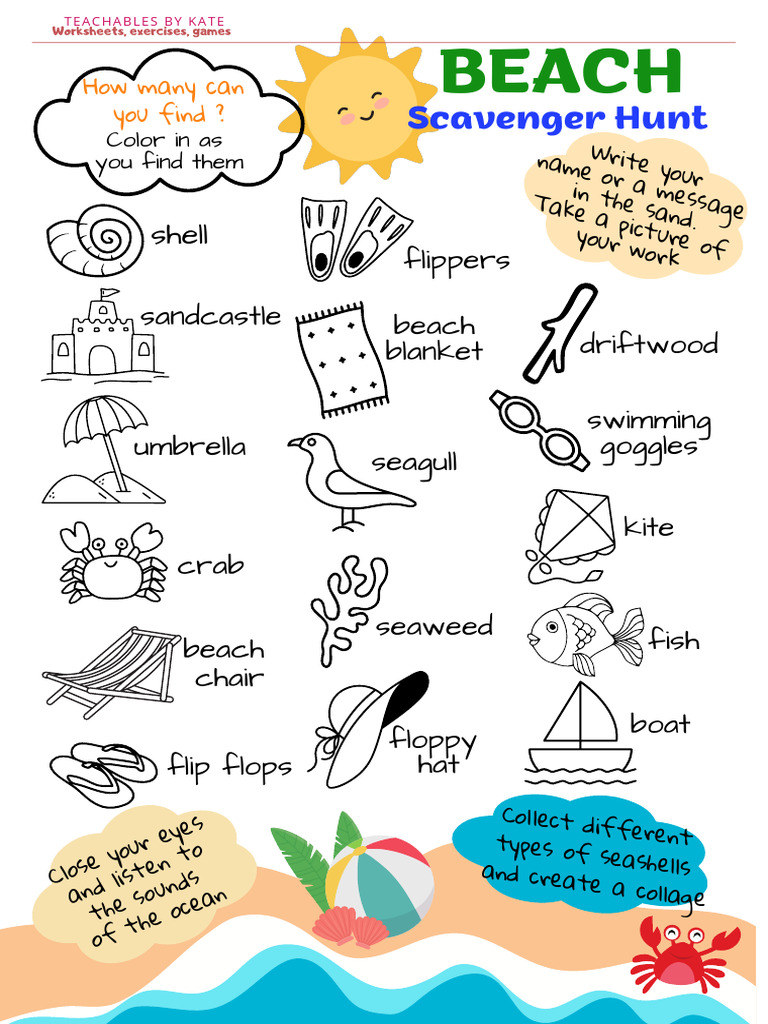 TEACHABLES BY KATE
Worksheets, exercises, games
BEACH
Scavenger Hunt
How many can
you find ?
Color in as
you find them
Write your
name or a message
in the sand.
Take a picture of
your work
shell
flippers
sandcastle
beach
blanket
driftwood
umbrella
seagull
swimming
goggles
crab
kite
seaweed
beach
chair
fish
flip flops
floppy
hat
boat
Close your eyes
and listen to
the sounds
of the ocean
Collect different
types of seashells
and create a collage